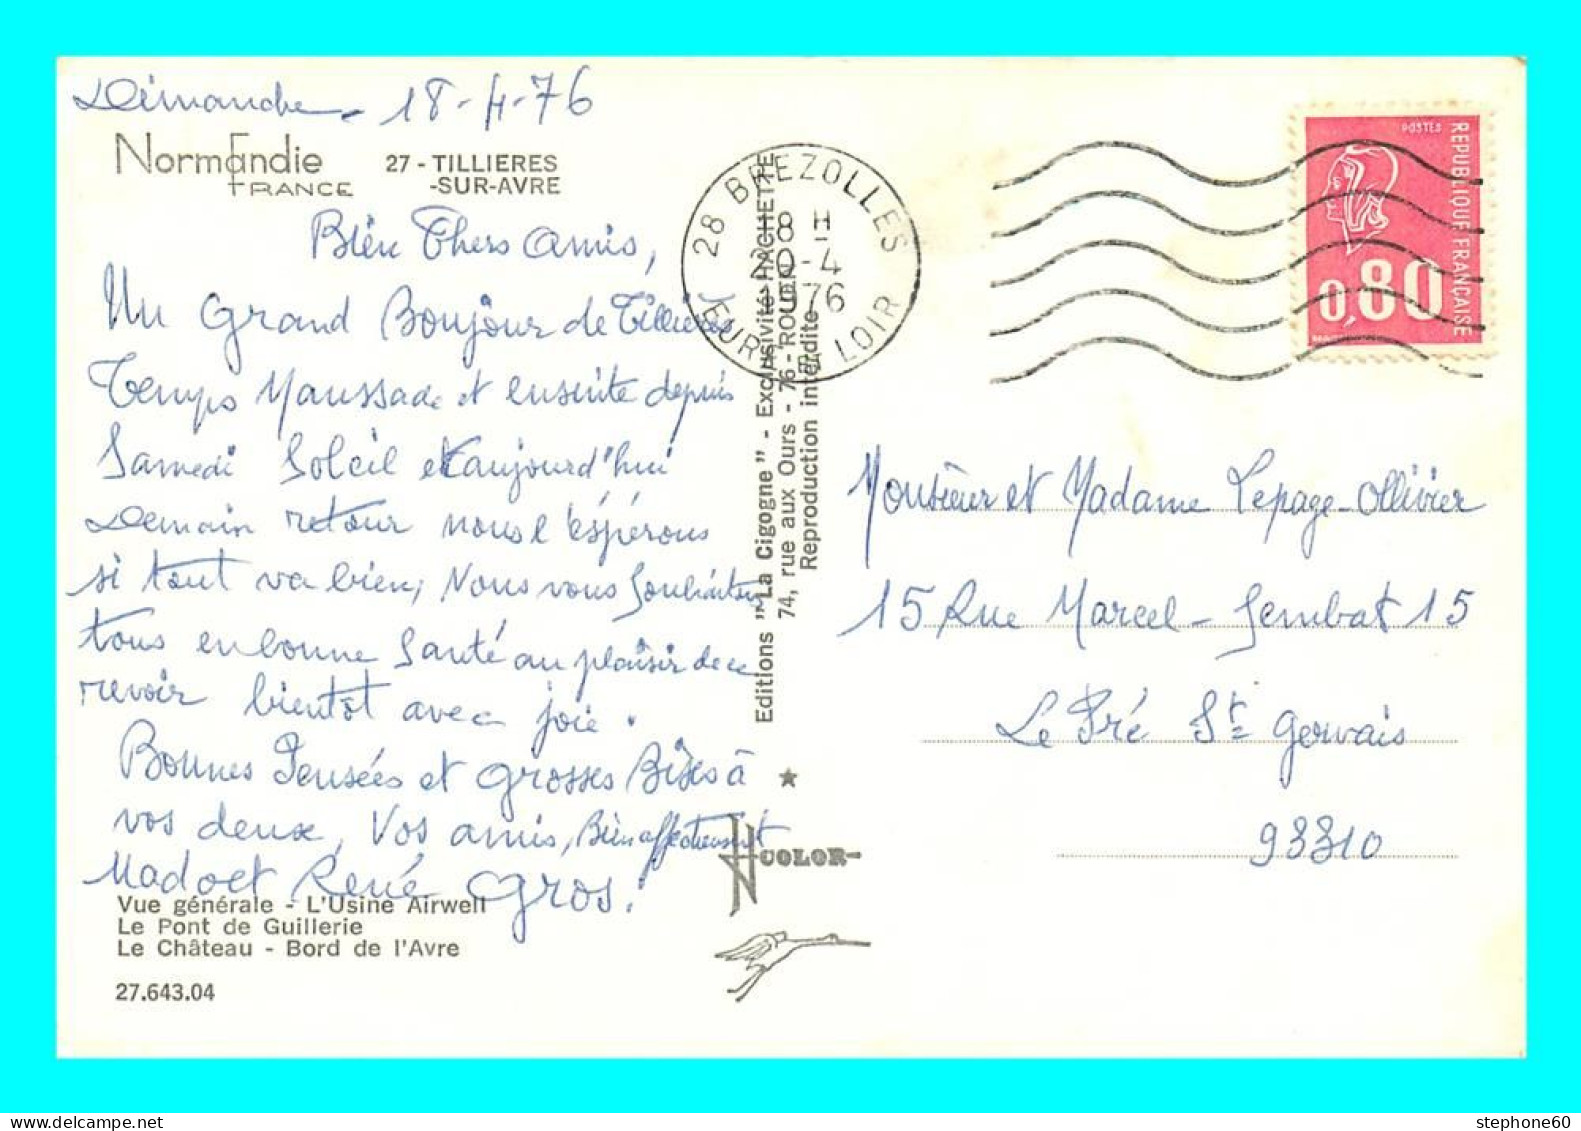 Dimanche - 18-4-76
Normandie
FRANCE
27 - TILLIERES
-SUR-AVRE
Bien Chers Amis,
Un Grand Bonjour de Tillières
Temps Maussade et ensuite depuis
Samedi Soleil et aujourd'hui
Demain retour nous l'espérons
si tout va bien, Nous vous souhaitons
tous en bonne Santé au plaisir de ce
revoir bientôt avec joie.
Bonnes Pensées et Grosses Bises à
vos deux, Vos amis, Bien affectueusement
Mado et René Gros.
Vue générale - L'Usine Airwell
Le Pont de Guillerie
Le Château - Bord de l'Avre
27.643.04
Editions "La Cigogne" - Exclusivité HACHETTE
74, rue aux Ours - 76 - ROUEN
Reproduction interdite
COLOR
28 BREZOLLES
18 H
20-4
1976
EURE ET LOIR
POSTES
REPUBLIQUE FRANÇAISE
0,80
Monsieur et Madame Lepage-Ollivier
15 Rue Marcel-Sembat 15
Le Pré St Gervais
93310
stephone60